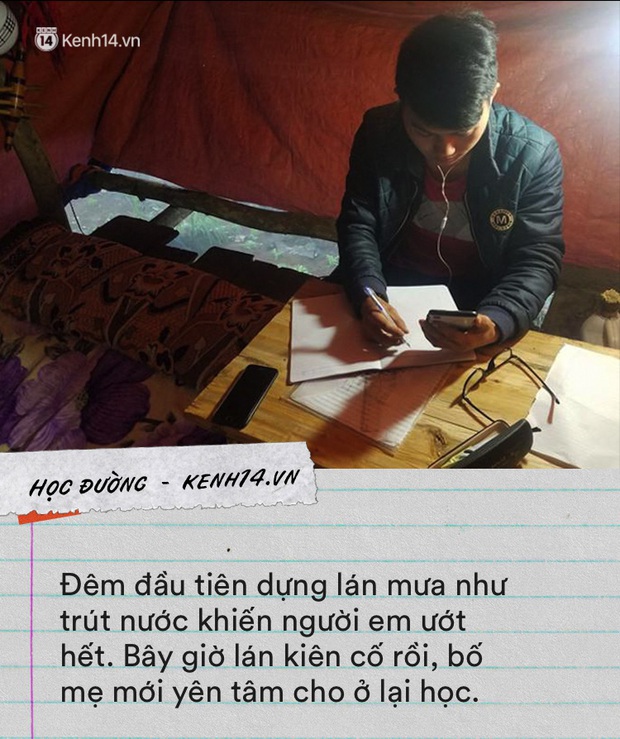 KENH
14 Kenh14.vn
M
HỌC ĐƯỜNG - KENH14.VN
Đêm đầu tiên dựng lán mưa như
trút nước khiến người em ướt
hết. Bây giờ lán kiên cố rồi, bố
mẹ mới yên tâm cho ở lại học.